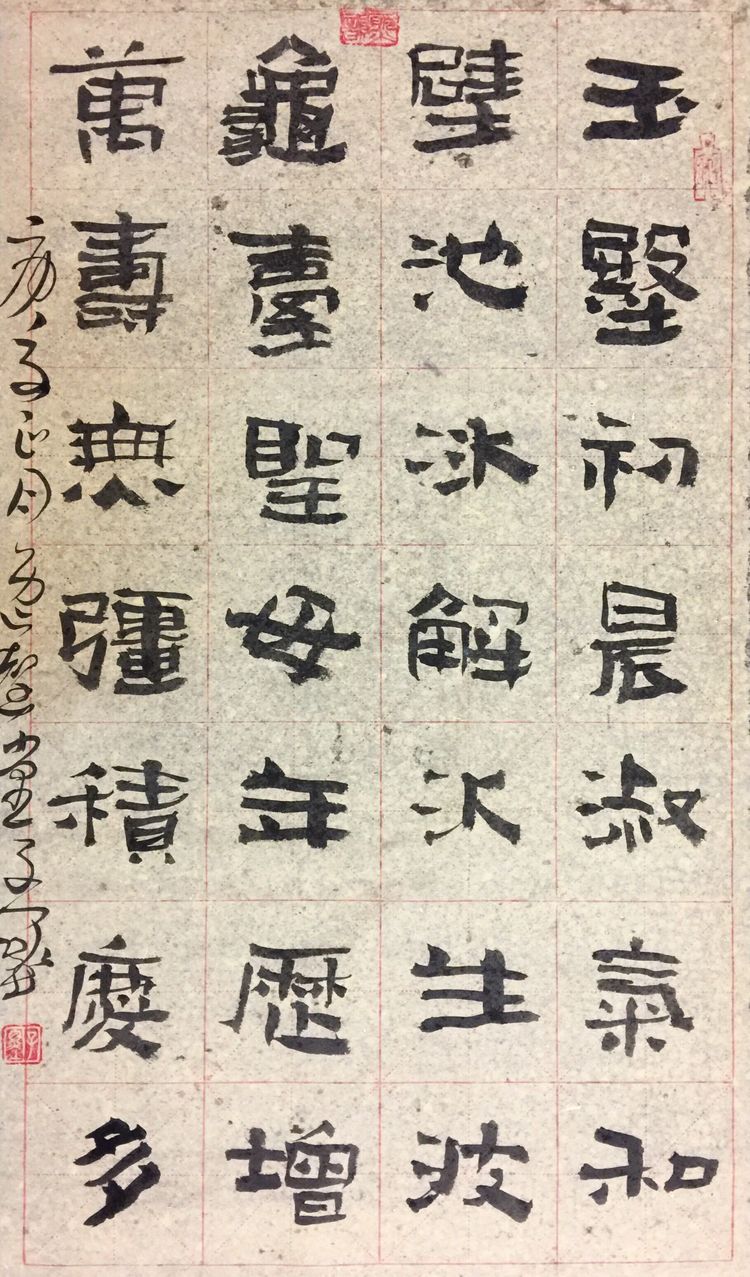 玉壂初晨淑氣和
璧池冰解水生波
龜臺聖母年歷增
萬壽無疆積慶多
庚子正月